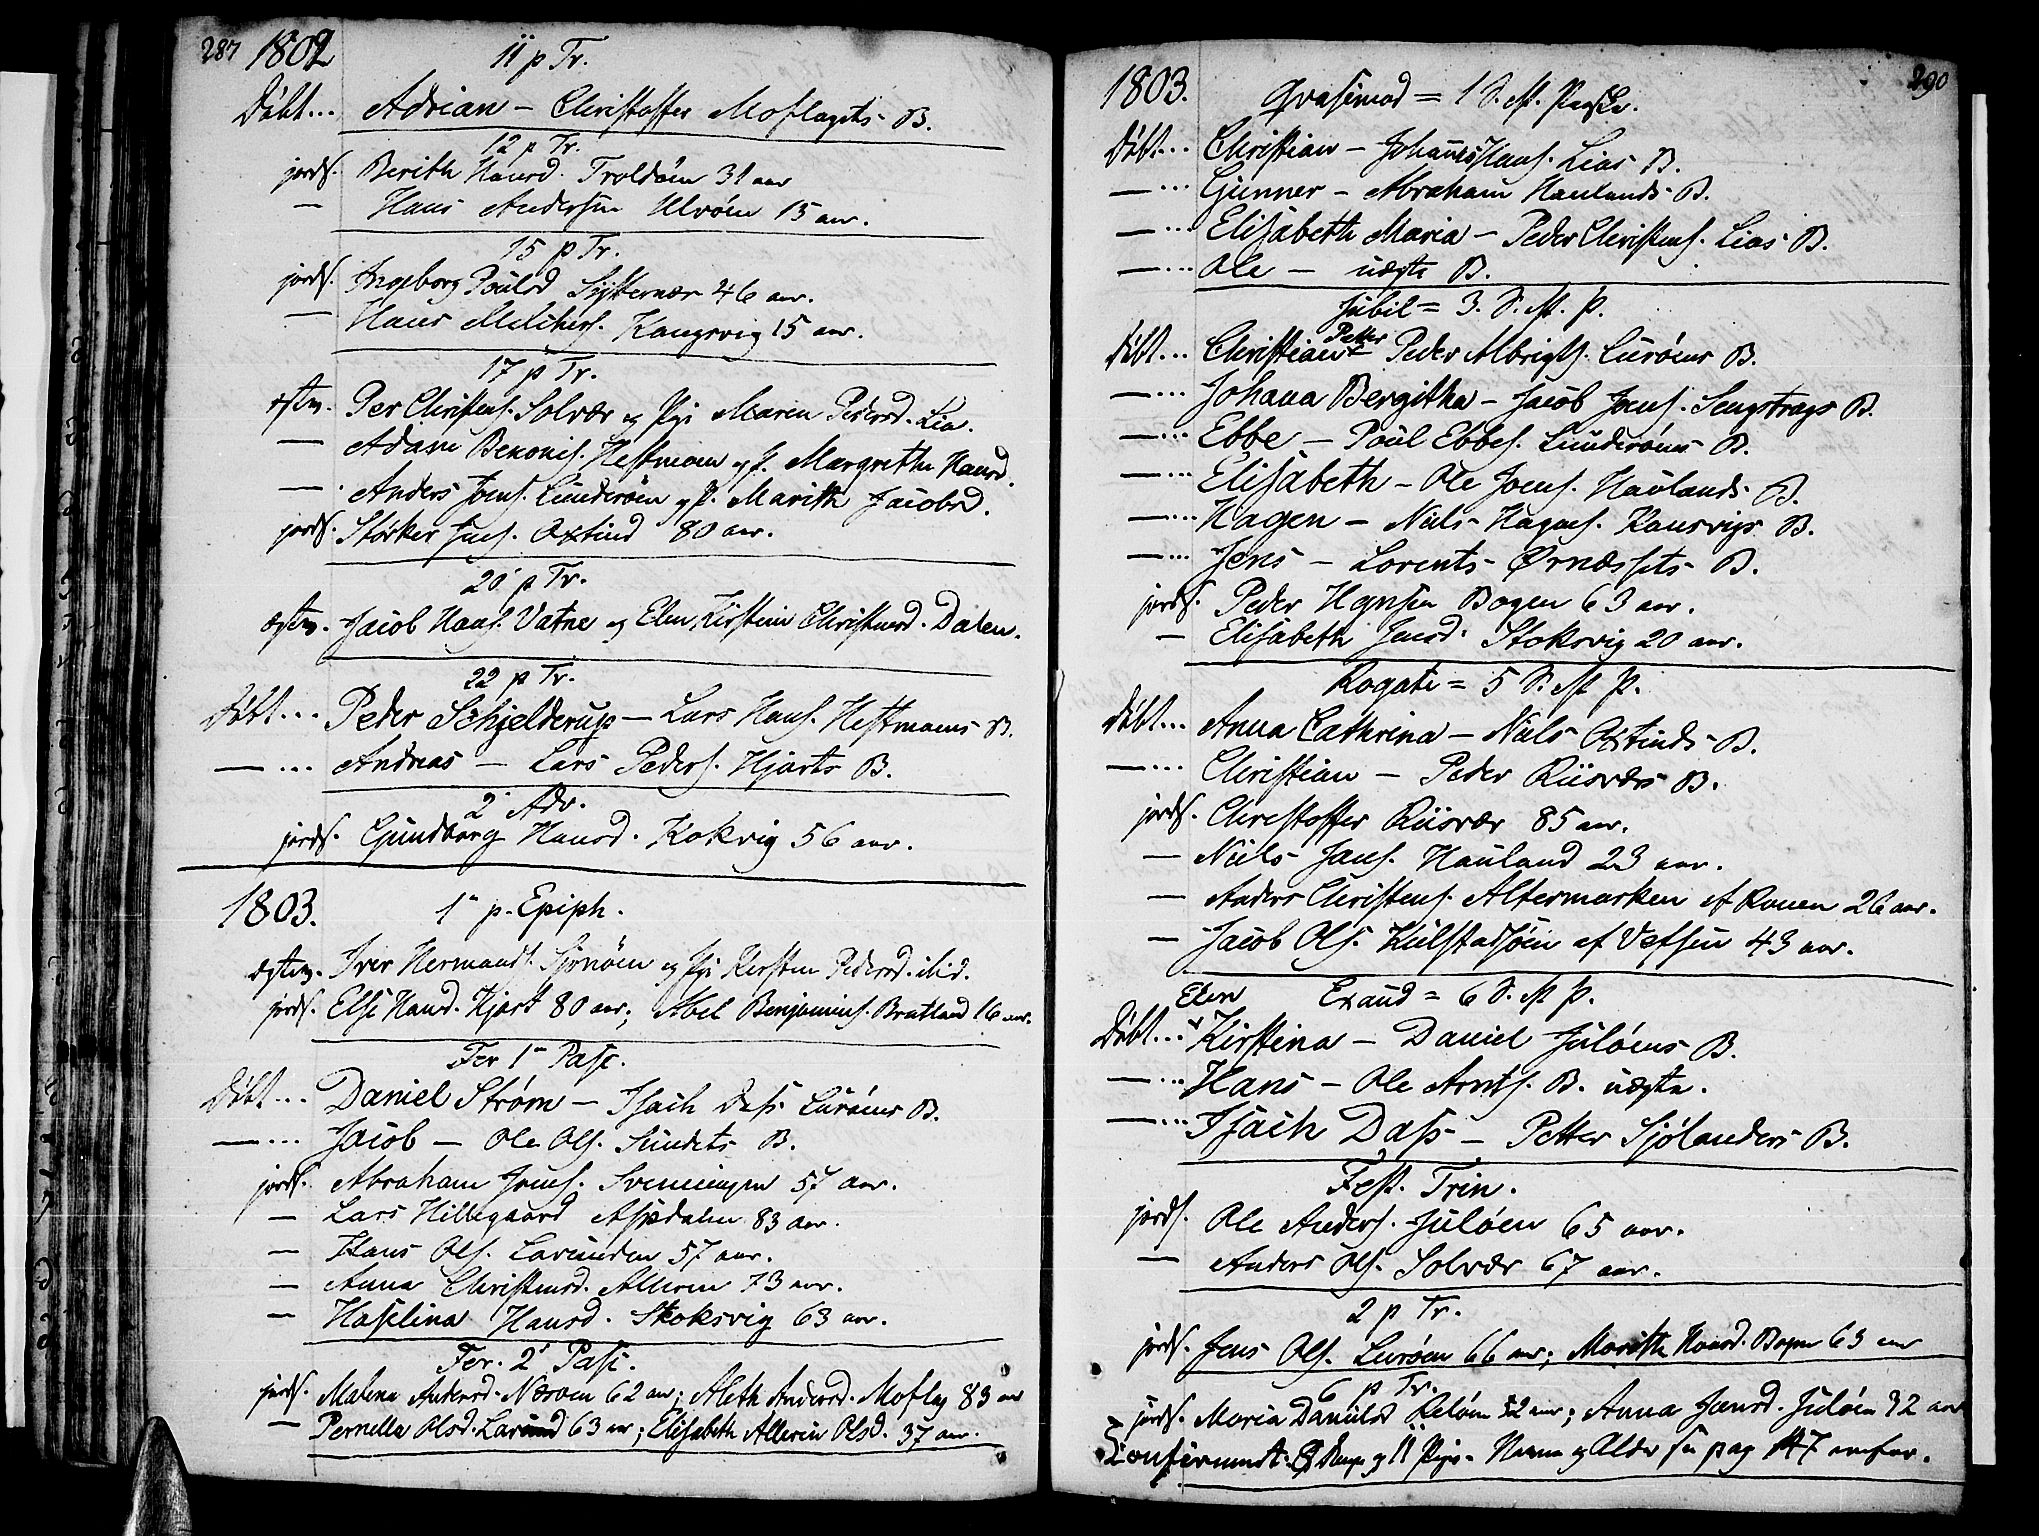 287 1802 11 p Tr.
Döbt... Adrian – Christoffer Moflagets B.
12 p Tr.
jords. Berith Hansd. Troldöen 31 aar
— Hans Andersen Ulvöen 15 aar.
15 p Tr.
jords. Ingeborg Poulsd 46 aar.
— Hans Melchers. Kangsvig 15 aar.
17 p Tr.
Per Christens. Solvær og Pige Maren Pedersd. Lia.
— Adam Benonis. Hestmoen og P. Margrethe Hansd.
— Anders Jens. Lunderöen og P. Marith Jacobsd.
jords. Störker Jens. Oxtind 80 aar.
20 p Tr.
ægtev. Jacob Hans. Vatne og Elen Kirstine Christensd. Dalen.
22 p Tr.
Döbt... Peder Schjelderup – Lars Hans. Hestmoens B.
—... Andreas – Lars Peders. Hjarts B.
2 Adv.
jords. Gundborg Hansd. Kokvig 56 aar.
1803. 1 p. Epiph.
ægtev. Iver Hermands. Sjonöen og Pige Kirsten Pedersd. ibid.
jords. Else Hansd. Hjart 80 aar; Abel Benjamins. Bratland 16 aar.
Fer 1 Pasc.
Döbt... Daniel Ström – Isach Dass Luröens B.
—... Jacob – Ole Ols. Sundets B.
jords. Abraham Jens. Svenningen 57 aar.
— Lars Hillegaard Aspdalen 83 aar.
— Hans Ols. Lovunden 57 aar.
— Anna Christensd. Alderen 73 aar.
— Haselina Hansd. Stoksvig 63 aar.
Fer. 2 Pasc.
jords. Malena Andersd. Næsöen 62 aar; Aleth Andersd. Moflag 83 aar
— Pernella Olsd. Lavund 63 aar; Elisabeth Alderen Olsd. 37 aar.
1803. Qvasimod = 1 S. eft. Paaske. 290
Döbt... Christian – Johannes Hans. Lias B.
—... Gunner – Abraham Haulands B.
—... Elisabeth Maria – Peder Christens. Lias B.
—... Ole – uægte B.
Jubil = 3. S. eft. P.
Döbt... Christian Petter Peder Albrigts. Luröens B.
—... Johana Bergitha – Jacob Jens. Sengskrogs B.
—... Ebbe – Poul Ebbes. Lunderöens B.
—... Elisabeth – Ole Jens. Haulands B.
—... Hagen – Niels Hagens. Kansvigs B.
—... Jens – Lorents Ørnæssets B.
jords. Peder Hansen Bogen 63 aar.
— Elisabeth Jensd. Stoksvig 20 aar.
Rogate = 5 S. eft P.
Döbt... Anna Cathrina – Niels Oxtinds B.
—... Christian – Peder Riisværs B.
jords. Christoffer Riisvær 85 aar.
— Niels Jans. Hauland 23 aar.
— Anders Christens. Altermarken af Ranen 26 aar.
— Jacob Ols. Kulstadsöen af Vefsen 43 aar.
Exaud = 6 S. eft P.
Döbt... Elen Kirstina – Daniel Julöens B.
—... Hans – Ole Arnts. B. uægte.
—... Isach Dass – Petter Sjölanders B.
Fest. Trin.
jords. Ole Anders. Julöen 65 aar.
— Anders Ols. Solvær 67 aar.
2 p Tr.
jords. Jens Ols. Luröen 66 aar; Marith Hansd. Bogen 63 aar
6 p Tr.
jords. Maria Danielsd 52 aar; Anna Jensd. Julöen 32 aar
Confirmeret 8 Drenge og 11 Piger. Navne og Alder see pag 147 ovenfor.